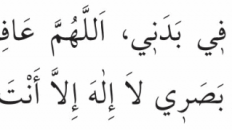 فِي بَدَنِي، اَللَّهُمَّ عَافِ
بَصَرِي لاَ إِلٰهَ إِلاَّ أَنْتَ